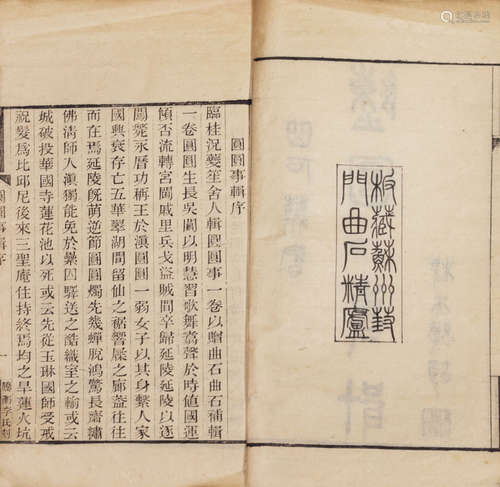 板藏蘇州葑
門曲石精廬
圓圓事輯序
臨桂況夔笙舍人輯圓圓事一卷以贈曲石曲石補輯
一卷圓圓生長吳閶以明慧習歌舞蔫聲於時値國運
傾否流轉宮閫戚里兵戈城間歸延陵延陵以逐
闖斃永曆功稱王於滇圓圓一弱女子以其身繫人家
國興衰存亡五華翠湖間留仙之裙響屧之廊蓋往往
而在焉延陵旣萌逆節圓圓燭先幾蟬脫鴻驚長齋繡
佛淸師入滇獨能免於纍囚驛送之酷織室之輸或云
城破投華國寺蓮花池以死或云先從玉琳國師受戒
祝髮爲比邱尼後來三聖庵住持終焉均之旱蓮火坑
圓圓事輯序
一
騰衝李氏刻